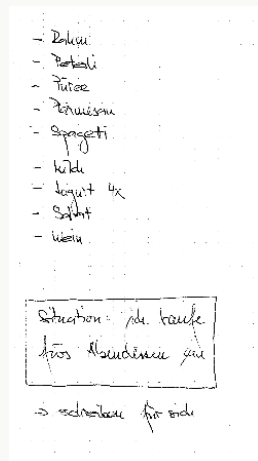 - Rahm
- Peterli
- Püree
- Parmesan
- Spagetti
- Milch
- Jogurt 4x
- Salat
- Wein
Situation: ich kaufe
fürs Abendessen ein
→ schreiben für sich